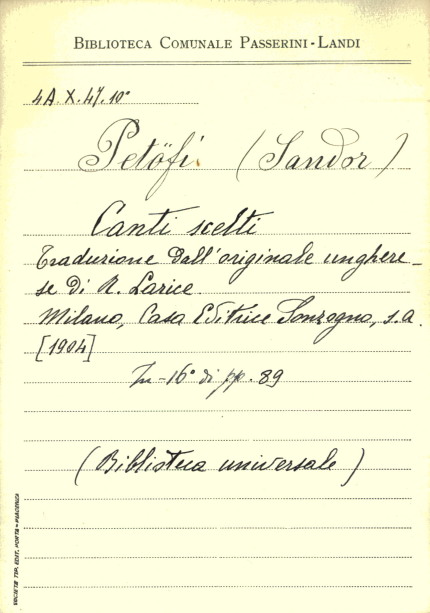 BIBLIOTECA COMUNALE PASSERINI-LANDI
4A.X.47.10°
Petöfi. (Sandor)
Canti scelti
Traduzione dall'originale unghere-
se di R. Larice.
Milano, Casa Editrice Sonzogno, s.a.
[1904]
In-16° di pp. 89
(Biblioteca universale)
SOCIETÀ TIP. EDIT. PORTA - PIACENZA